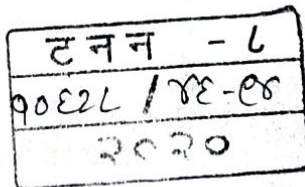 ट न न - ८
१०६२८ / ४६-९४
२०२०